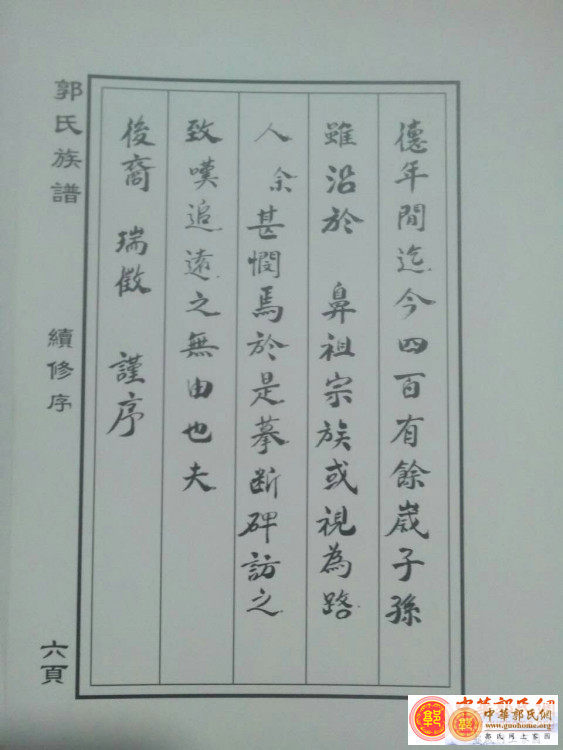 德年間迄今四百有餘歲子孫
雖沿於 鼻祖宗族或視為路
人 余甚憫焉於是摹斷碑訪之
致嘆追遠之無由也夫
後裔 瑞徵 謹序
郭氏族譜 續修序 六頁
中華郭氏網
中華郭氏網
www.guohome.org
郭氏网上家园